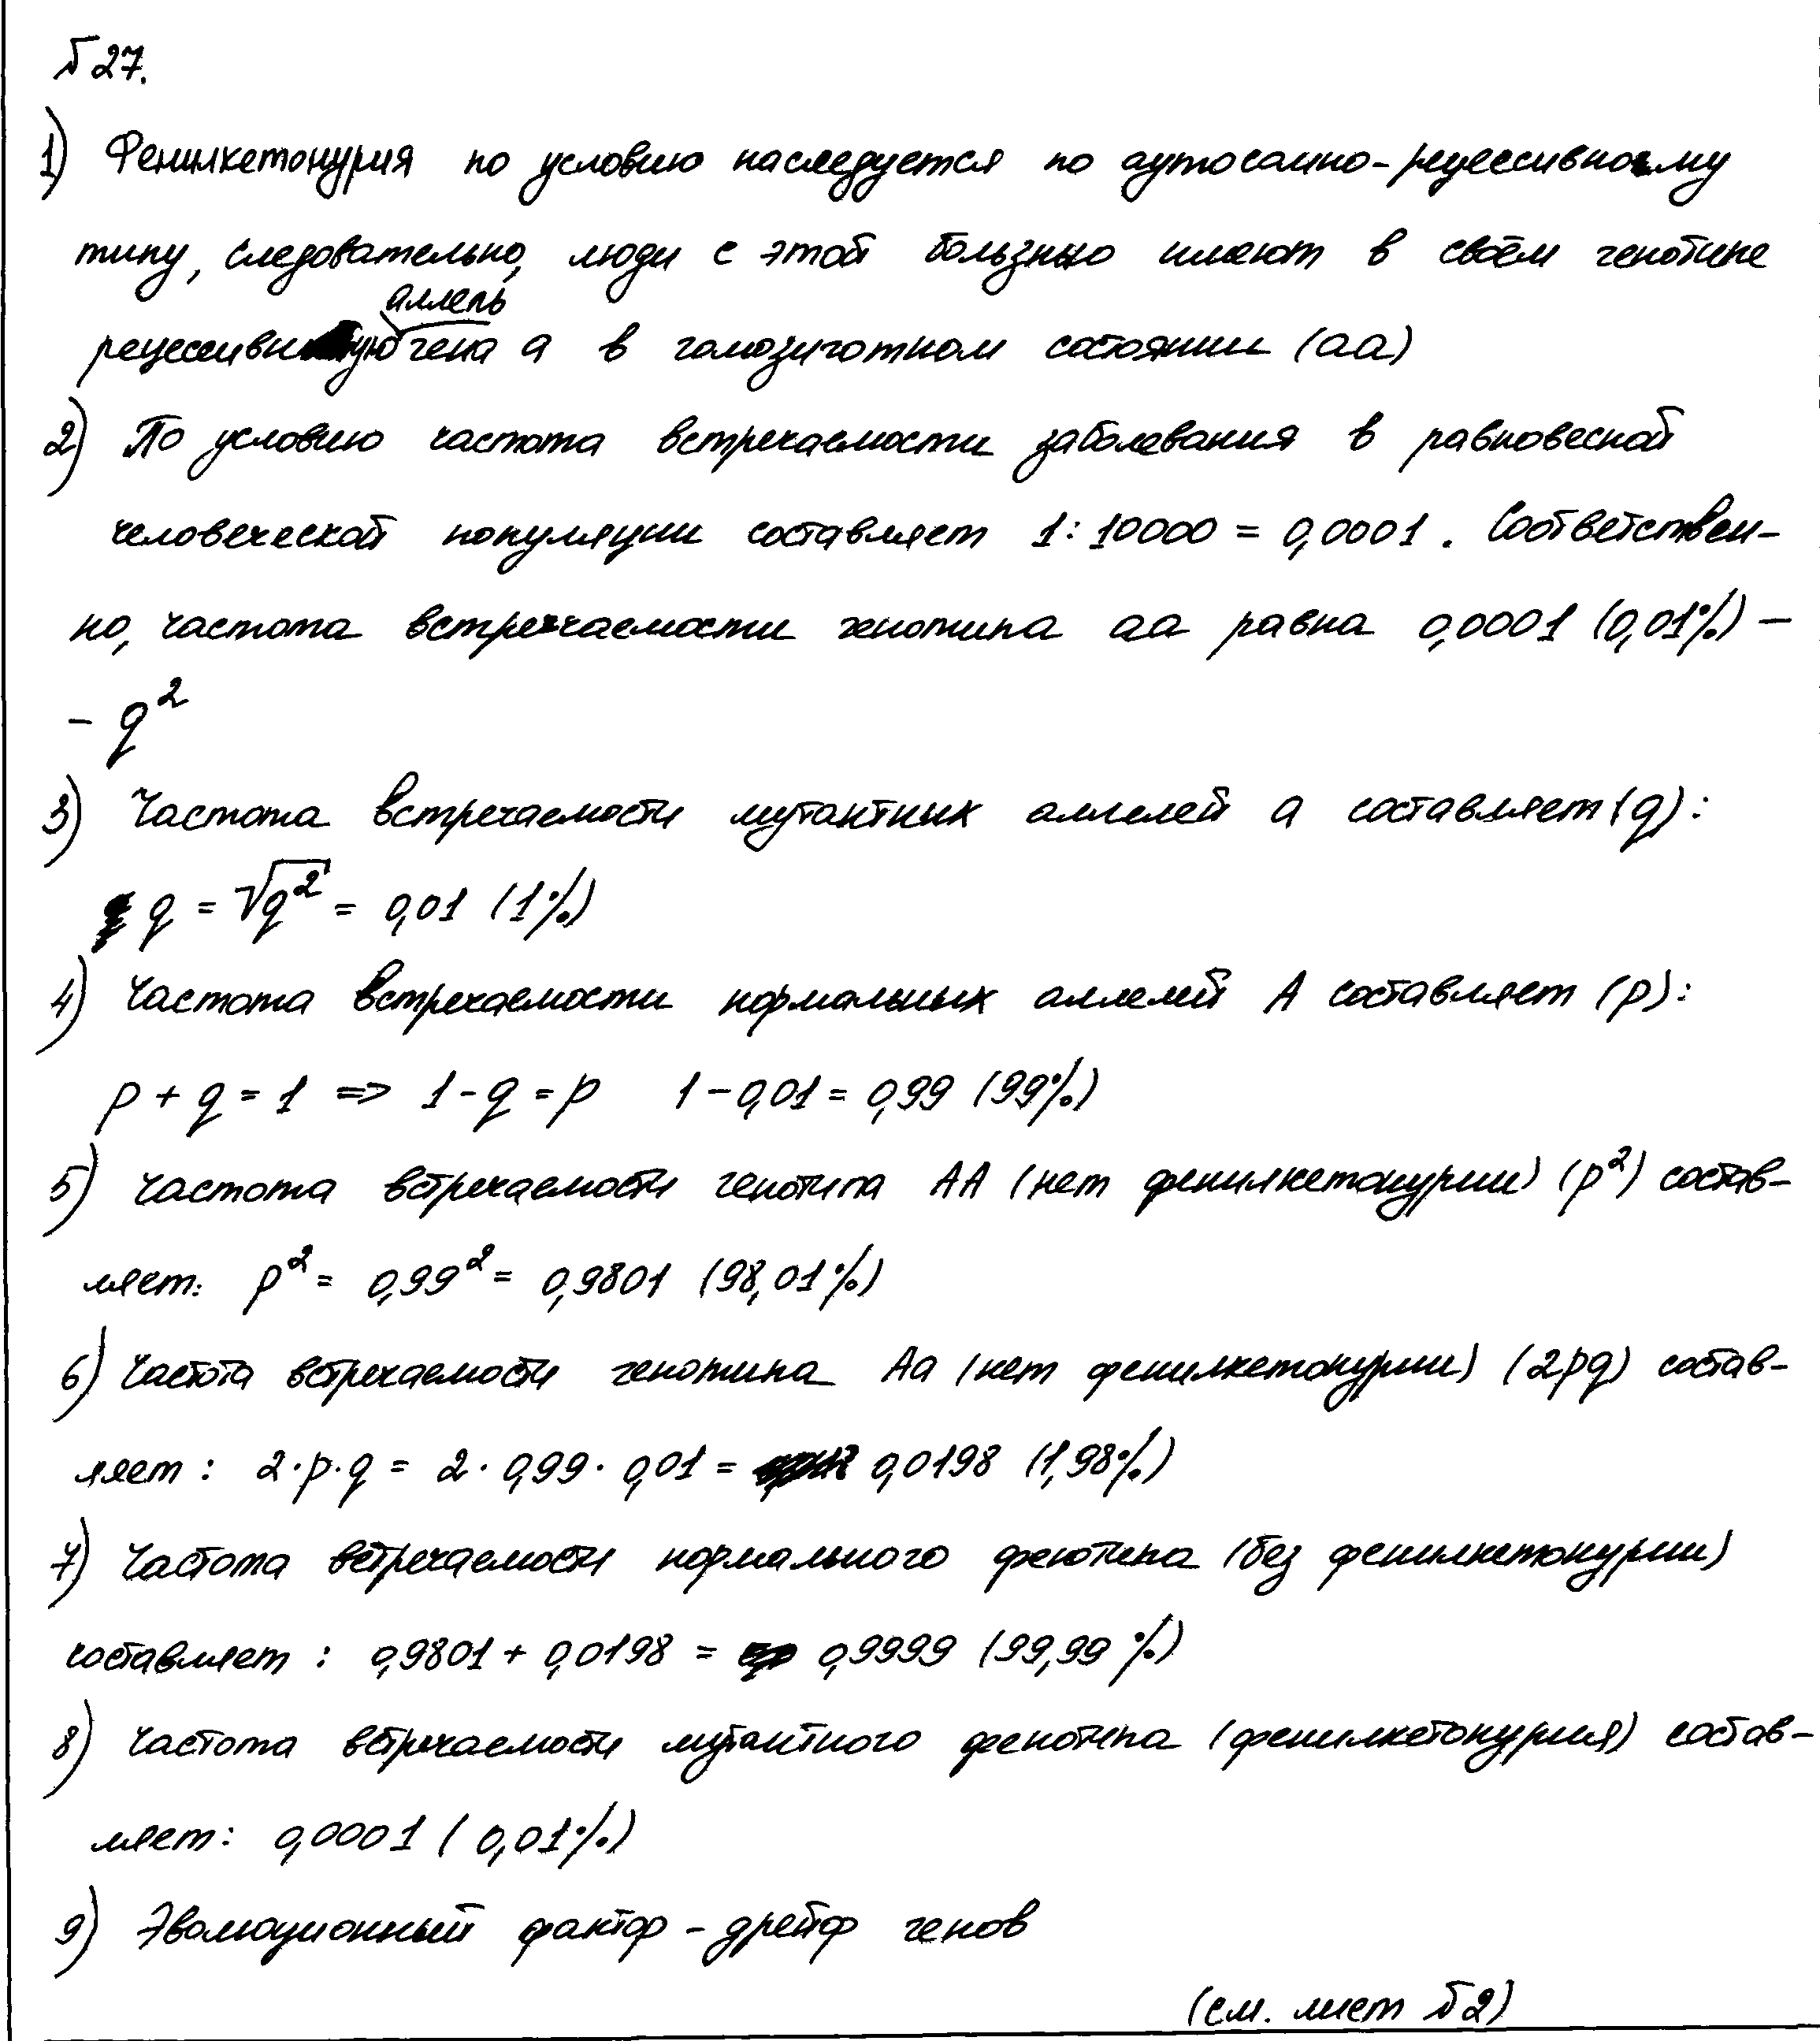 №27.
1) Фенилкетонурия по условию наследуется по аутосомно-рецессивному
типу, следовательно, люди с этой болезнью имеют в своём генотипе
аллель
рецессивную гена a в гомозиготном состоянии (aa)
2) По условию частота встречаемости заболевания в равновесной
человеческой популяции составляет 1:10000 = 0,0001. Соответствен-
но, частота встречаемости генотипа aa равна 0,0001 (0,01%) –
– q²
3) Частота встречаемости мутантных аллелей a составляет (q):
q = √q² = 0,01 (1%)
4) Частота встречаемости нормальных аллелей A составляет (p):
p + q = 1 => 1 - q = p 1 – 0,01 = 0,99 (99%)
5) Частота встречаемости генотипа AA (нет фенилкетонурии) (p²) состав-
ляет: p² = 0,99² = 0,9801 (98,01%)
6) Частота встречаемости генотипа Aa (нет фенилкетонурии) (2pq) состав-
ляет: 2·p·q = 2·0,99·0,01 = 0,0198 (1,98%)
7) Частота встречаемости нормального фенотипа (без фенилкетонурии)
составляет: 0,9801 + 0,0198 = 0,9999 (99,99%)
8) Частота встречаемости мутантного фенотипа (фенилкетонурия) состав-
ляет: 0,0001 (0,01%)
9) Эволюционный фактор – дрейф генов
(см. лист №2)